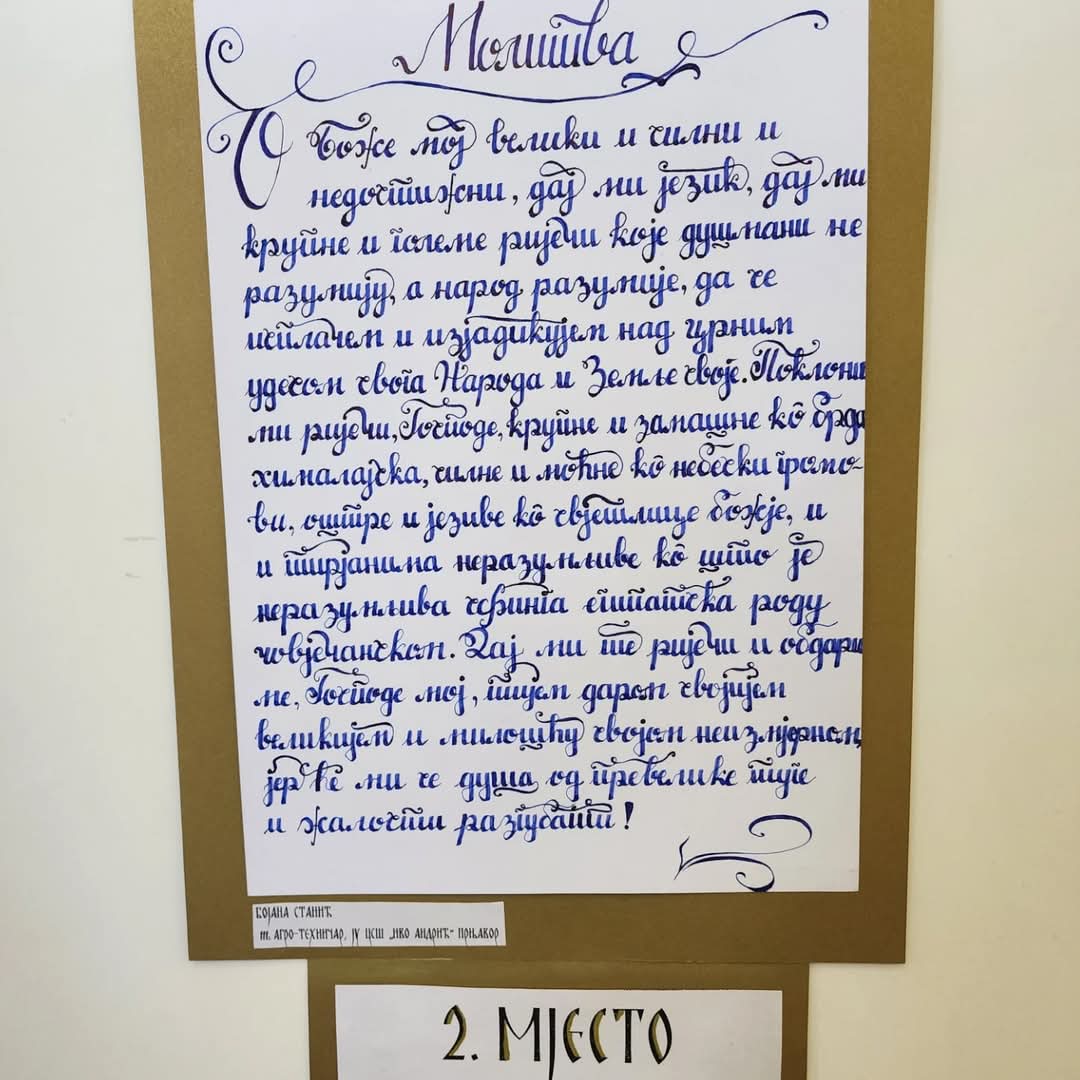 Молитва
О Боже мој велики и силни и
недостижни, дај ми језик, дај ми
крупне и големе ријечи које душмани не
разумију, а народ разумије, да се
исплачем и изјадикујем над црним
удесом свога Народа и Земље своје. Поклони
ми ријечи, Господе, крупне и замашне кô брда
хималајска, силне и моћне кô небески громо-
ви, оштре и језиве кô свјетлице божје, и
и тирјанима неразумљиве кô што је
неразумљива сфинга египатска роду
човјечанском. Дај ми те ријечи и обдари
ме, Господе мој, тијем даром својијем
великијем и милошћу својом неизмјерном,
јер ће ми се душа од превелике туге
и жалости разгубати!
Бојана Станић
III. АГРО-ТЕХНИЧАР, ЈУ ЦСШ „ИВО АНДРИЋ“ ПРЊАВОР
2. МЈЕСТО